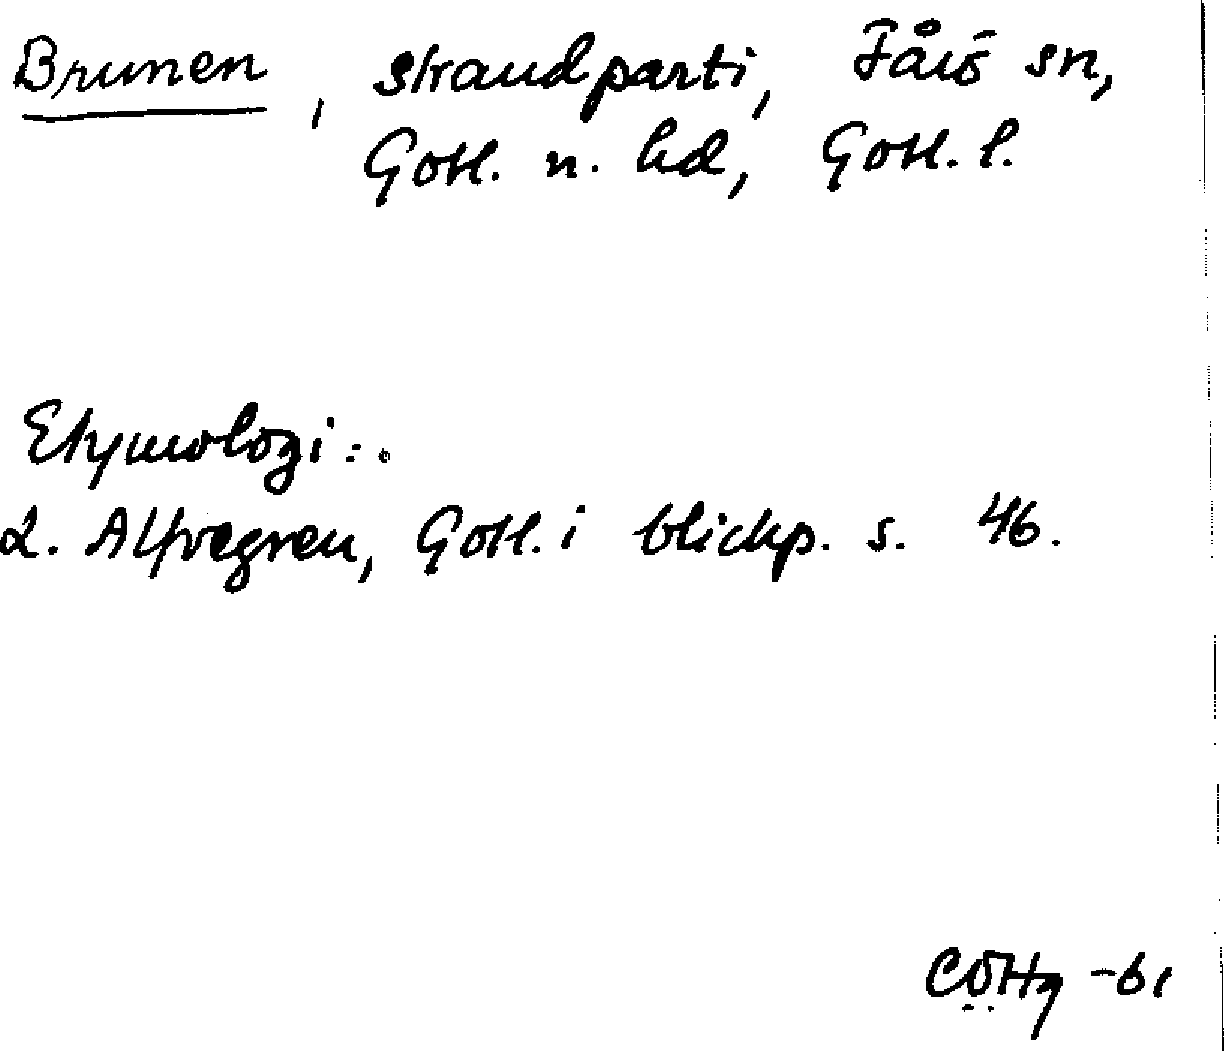 Brunen, strandparti, Fårö sn,
Gotl. n. hd, Gotl. l.
Etymologi:
L. Alfvegren, Gotl. i blickp. s. 46.
CÖHg -61